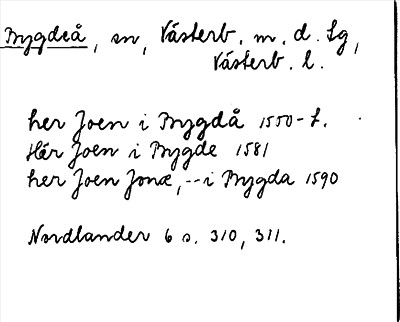 Bygdeå, sn, Västerb. m. d. Lg,
Västerb. l.
her Joen i Bygdå 1550-t.
Hér Joen i Bygde 1581
her Joen Jonæ, -- i Bygda 1590
Nordlander 6 s. 310, 311.